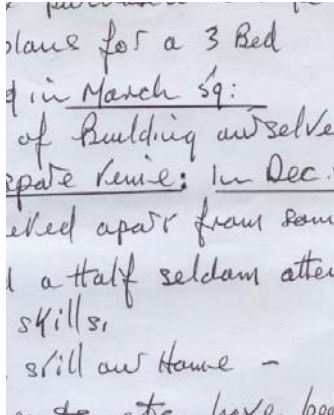 plans for a 3 Bed
in March 59:
of Building ourselve
In Dec.
apart from som
a Half seldom atte
skills,
still our Home -
have bee